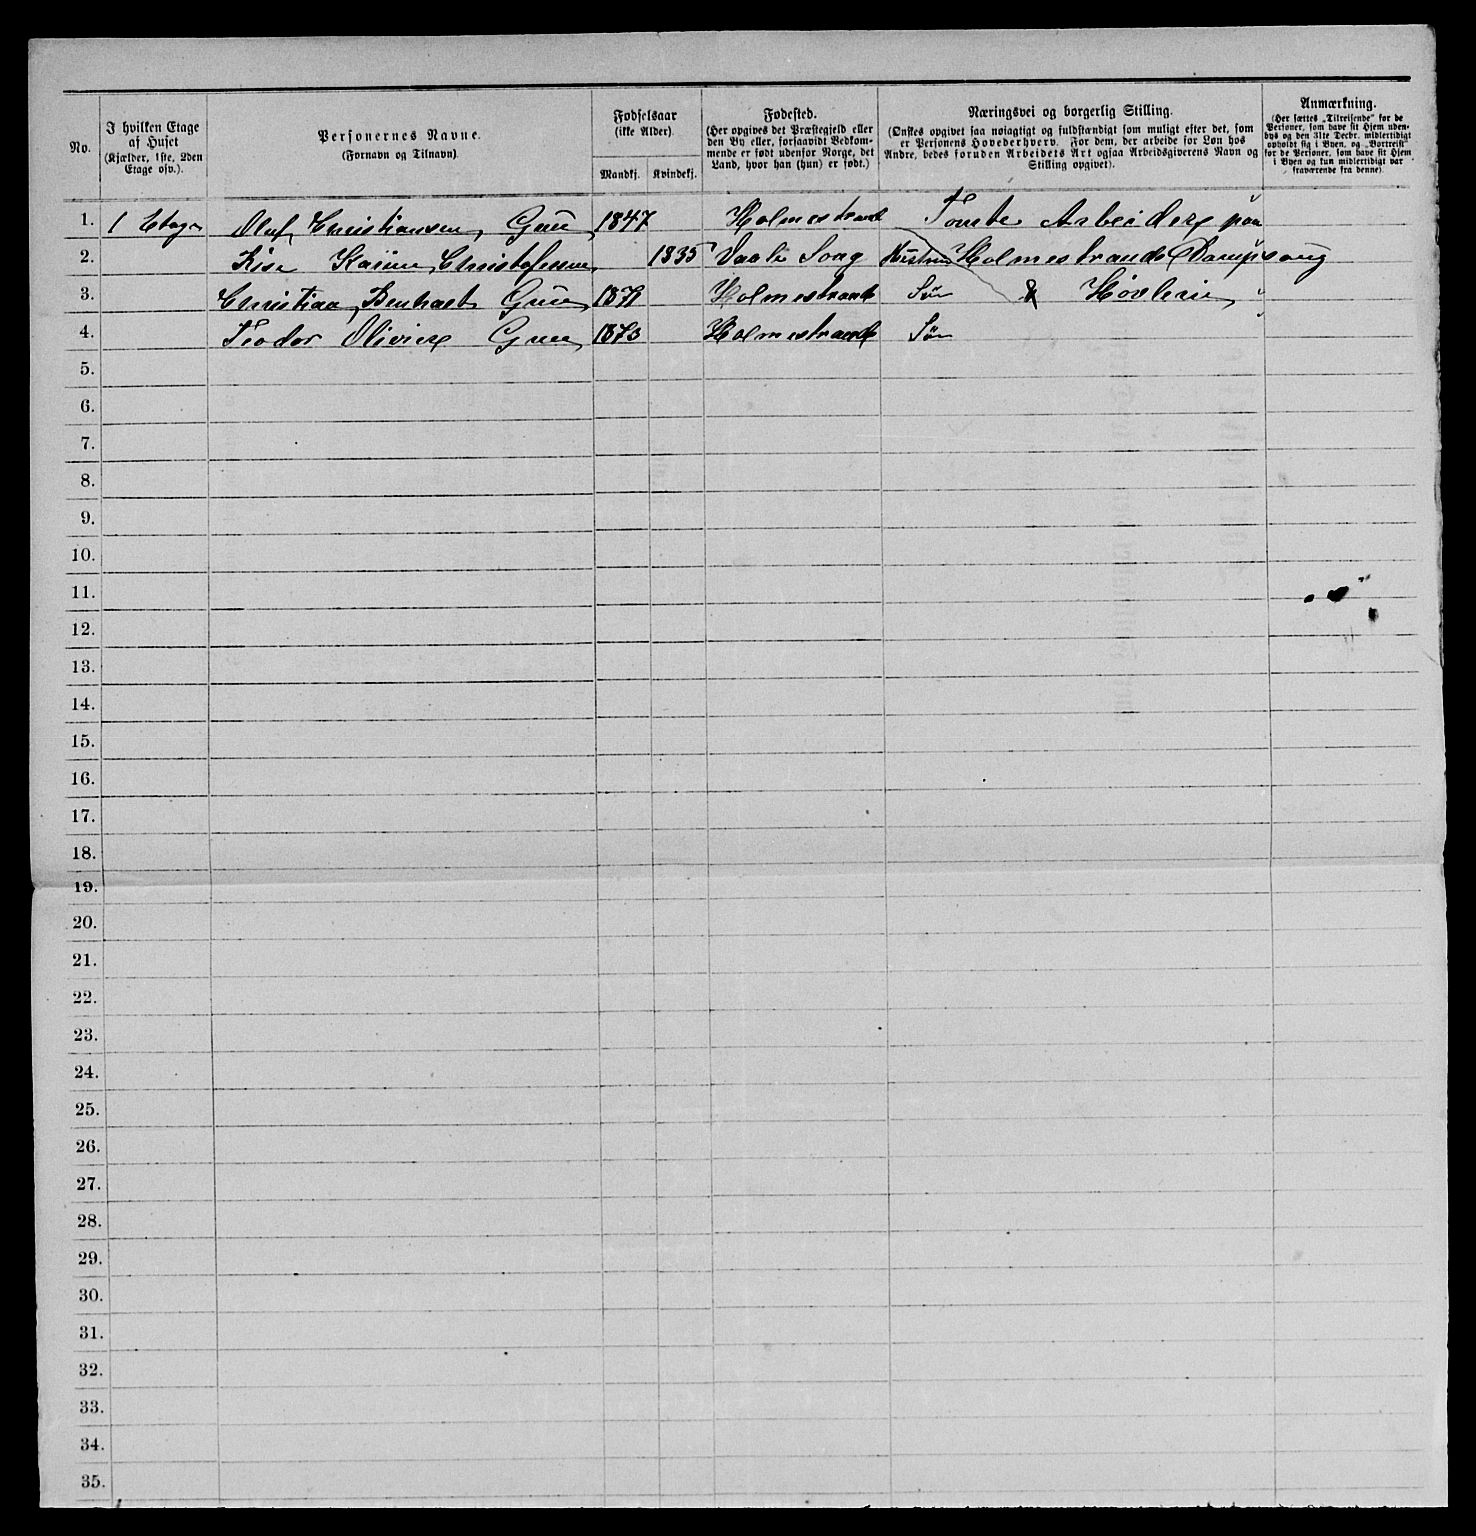 No.
I hvilken Etage
af Huset
(Kjælder, 1ste, 2den
Etage osv.).
Personernes Navne.
(Fornavn og Tilnavn)
Fødselsaar
(ikke Alder)
Mandkj. Kvindekj.
Fødested.
(Her opgives det Præstegjeld eller
den By eller, forsaavidt Vedkom-
mende er født udenfor Norge, det
Land, hvor han (hun) er født.)
Næringsvei og borgerlig Stilling.
(Ønskes opgivet saa nøiagtigt og fuldstændigt som muligt efter det, som
er Personens Hovederhverv. For dem, der arbeide for Løn hos
Andre, bedes foruden Arbeidets Art ogsaa Arbeidsgiverens Navn og
Stilling opgivet).
Anmærkning.
(Her sættes „Tilreisende“ for de
Personer, som have sit Hjem uden-
bys og den 31te Decbr. midlertidigt
opholdt sig i Byen, og „Bortreist“
for de Personer, som have sit Hjem
i Byen og kun midlertidigt var
fraværende fra denne)
1. 1 Etage Oluf Christiansen 1847 Holmestrand Tomte Arbeider paa
2. Karine Christofersen 1835 Vaale Sogn Hustru Holmestrands Dampsaug
3. Christian 1871 Holmestrand Søn & Høvleri
4. Teodor 1873 Holmestrand Søn
5.
6.
7.
8.
9.
10.
11.
12.
13.
14.
15.
16.
17.
18.
19.
20.
21.
22.
23.
24.
25.
26.
27.
28.
29.
30.
31.
32.
33.
34.
35.